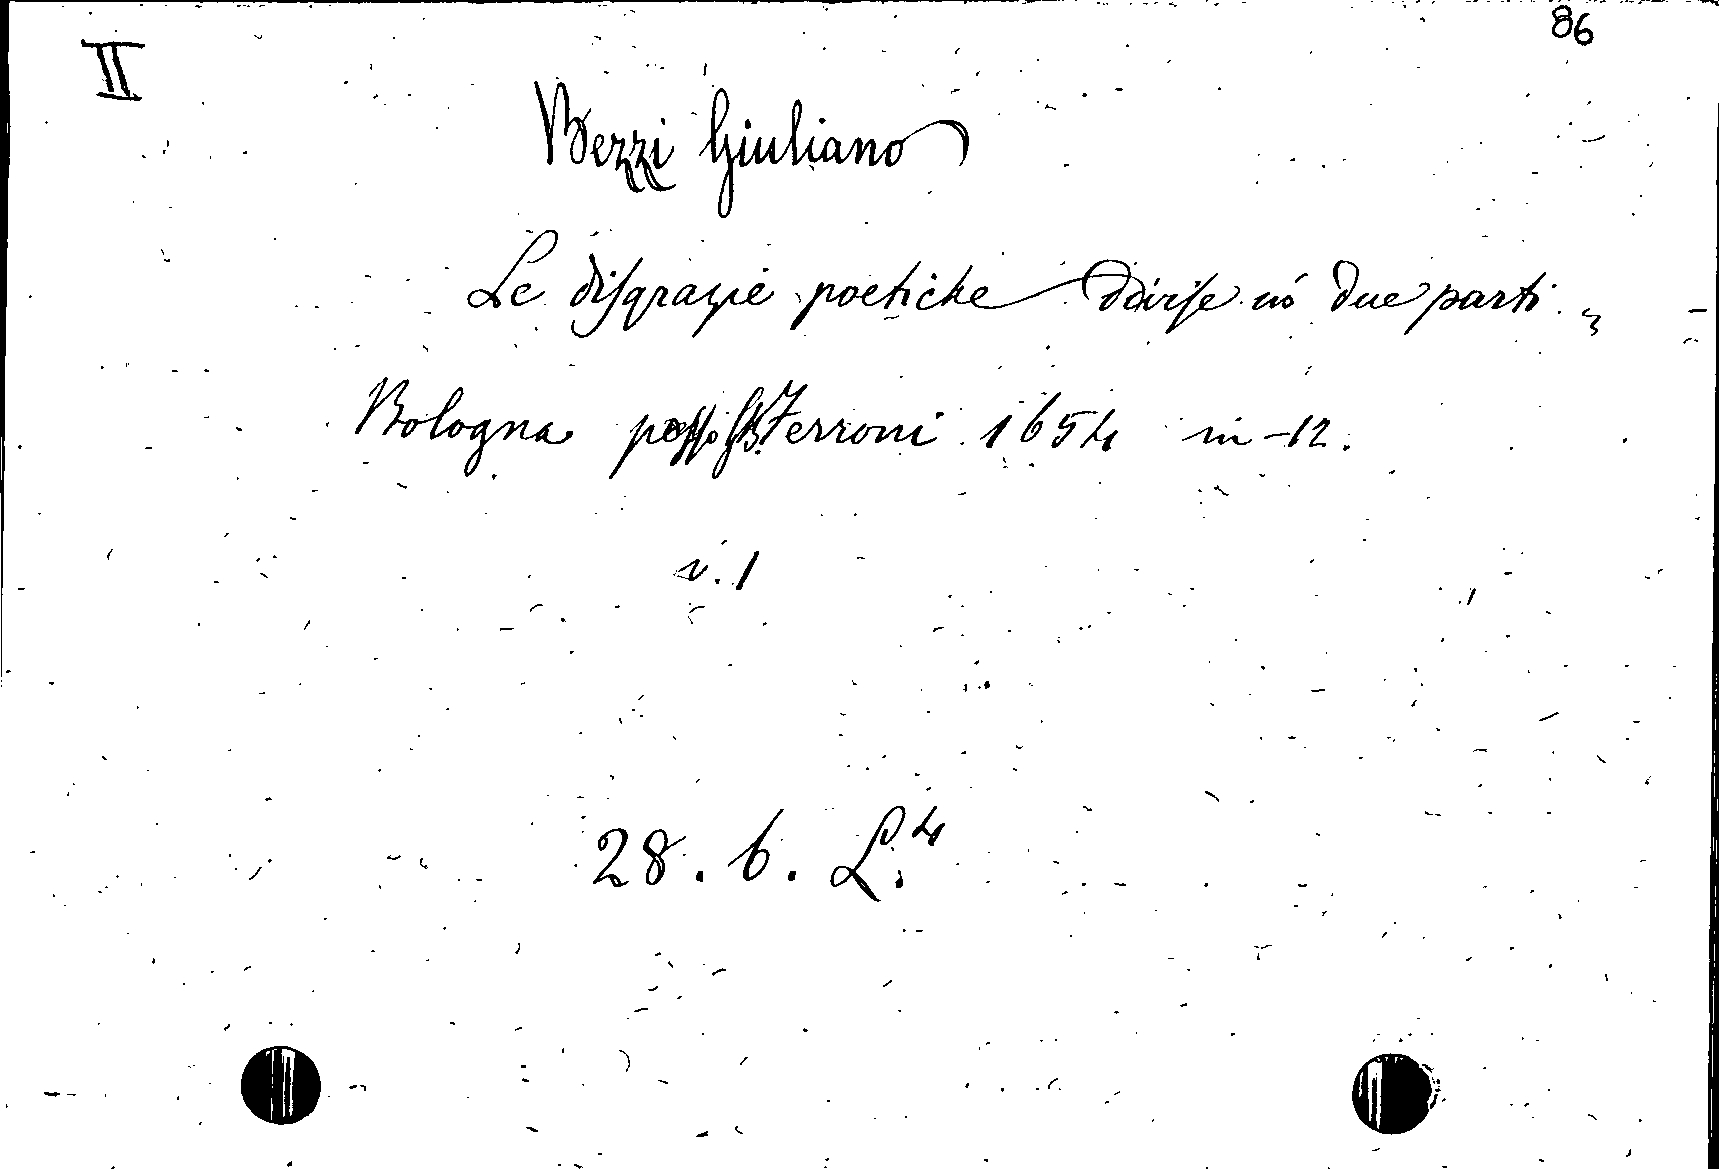 86
II
Bezzi Giuliano
Le disgrazie poetiche divise in due parti.
Bologna presso GB. Ferroni 1654 in-12.
v. 1
28. 6. L.4